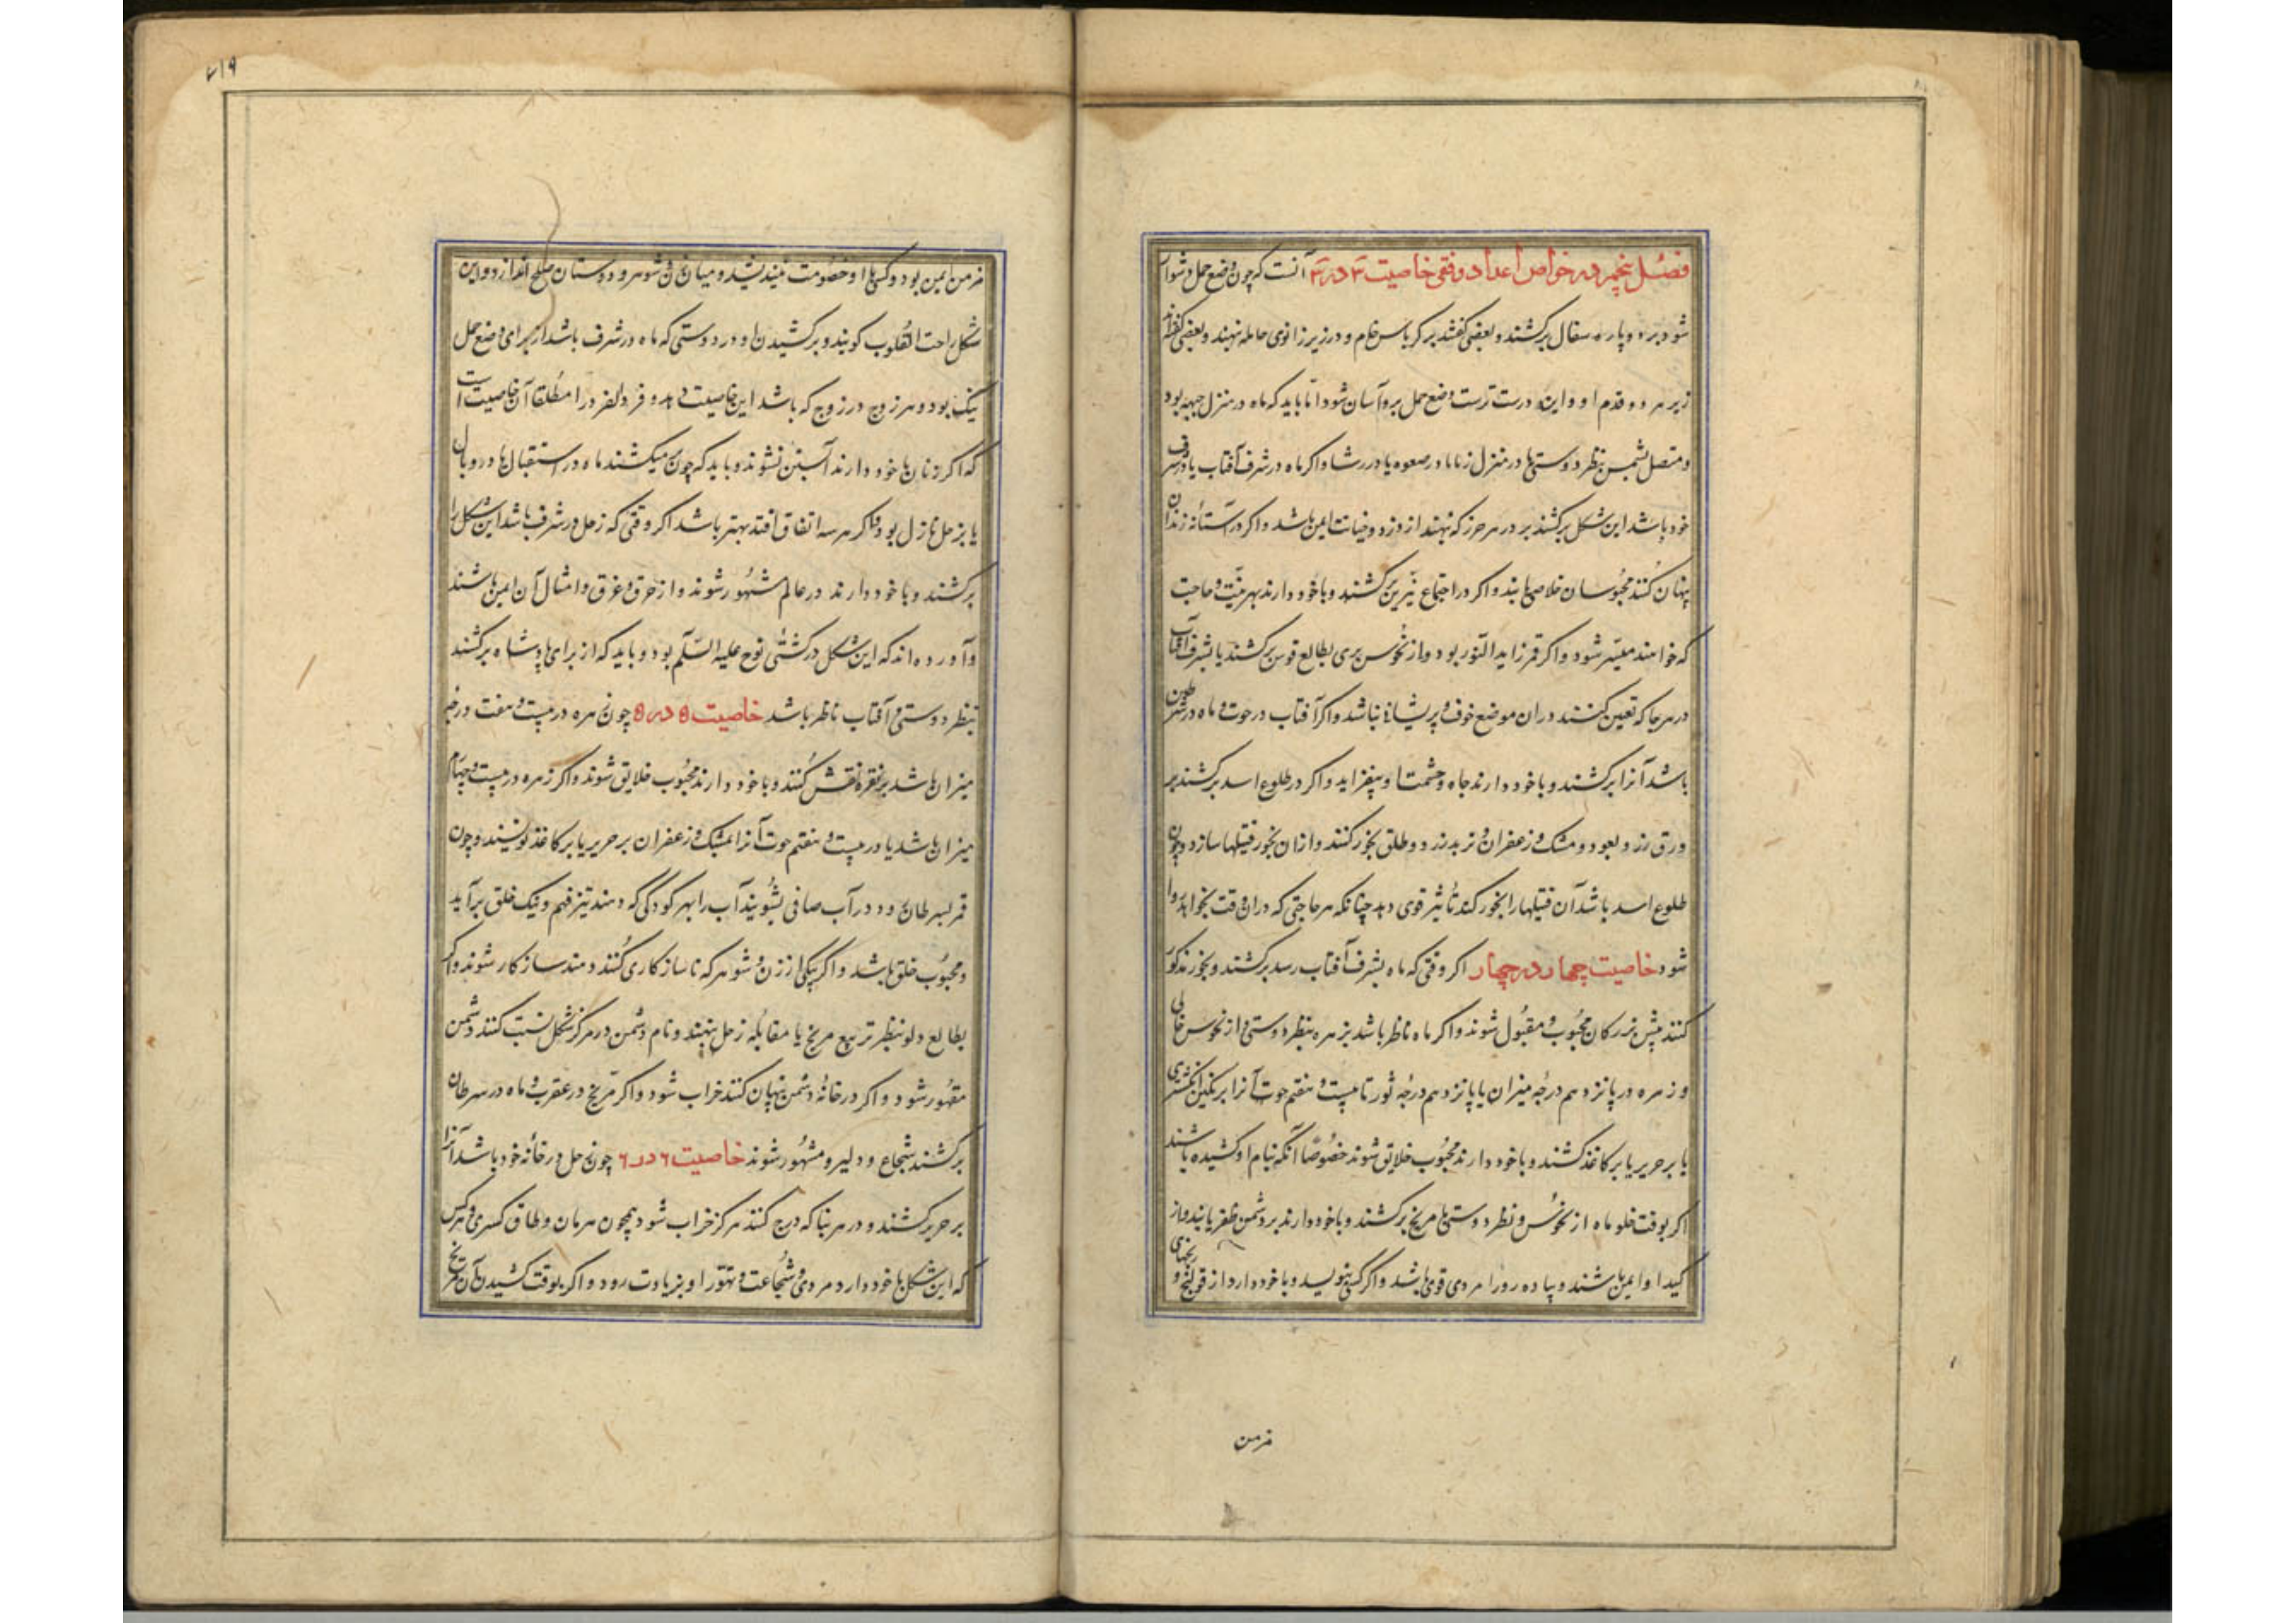 فصل پنجم در خواص اعداد وفقی خاصیت ۳ در ۳ آنست که چون وضع حمل دشوار
شود بر دو پاره سفال برکشند و بعضی گفته‌اند بر کرباس خام و در زیر زانوی حامله نهند و بعضی گفته‌اند
زیر هر دو قدم او و این درست ترست وضع حمل برو آسان شود اما باید که ماه در منزل جبهه بود
و متصل بشمس بنظر دوستی یا در منزل زبانا در صعود یا در رشا و اگر ماه در شرف آفتاب یا در شرف
خود باشد این شکل برکشند بر در هر حرز که نهند از دزد و خیانت ایمن باشد و اگر در آستانه زندان
پنهان کنند محبوسان خلاصی یابند و اگر در اجتماع نیرین برکشند و با خود دارند بهر نیت و حاجت
که خواهند میسر شود و اگر قمر زاید النور بود و از نحوس بری بطالع قوس برکشند یا بشرف آفتاب
در هر جا که تعیین کنند در آن موضع خوف و پریشانی نباشد و اگر آفتاب در حوت و ماه در سرطان
باشد آنرا برکشند و با خود دارند جاه و حشمت او بیفزاید و اگر در طلوع اسد برکشند بر
ورق زر و بعود و مشک و زعفران و طلق بخور کنند و از آن بخور فتیلها سازد و چون
طلوع اسد باشد آن فتیلها را بخور کند تأثیر قوی دهد چنانکه هر حاجتی که در آن وقت بخواهد روا
شود خاصیت چهار در چهار اگر وقتی که ماه بشرف آفتاب رسد برکشند و بخور مذکور
کنند پیش بزرکان محبوب و مقبول شوند و اگر ماه ناظر باشد بزهره بنظر دوستی و از نحوس خالی
و زهره در پانزدهم درجه میزان یا پانزدهم درجه ثور تا بیست و هفتم حوت آنرا بر نگین انگشتری
یا بر حریر یا بر کاغذ کشند و با خود دارند محبوب خلایق شوند خصوصا آنکه بنام او کشیده باشند
اگر بوقت خلو ماه از نحوس و نظر دوستی با مریخ برکشند و با خود دارند بر دشمن ظفر یابند و از
کید او ایمن باشند و پیاده رو را مردی قوی باشد و اگر کسی بنویسد و با خود دارد از قولنج و رنجهای
مزمن
مزمن ایمن بود و کسی با او خصومت نیندیشد و میان زن و شوهر و دوستان صلح اندازد و این
شکل راحت القلوب کویند و برکشیدن او در دوستی که ماه در شرف باشد از برای وضع حمل
نیک بود و هر زوج در زوج که باشد این خاصیت دهد و فرد الفرد را مطلقا آن خاصیت است
که اگر زنان با خود دارند آبستن نشوند و باید که چون میکشند ماه در استقبال یا در وبال
یا بزحل نازل بود و اگر هر سه اتفاق افتد بهتر باشد اگر وقتی که زحل در شرف باشد این شکل را
برکشند و با خود دارند در عالم مشهور شوند و از حرق و غرق و امثال آن ایمن باشند
و آورده‌اند که این شکل در کشتی نوح علیه السلم بود و باید که از برای پادشاه برکشند
بنظر دوستی و آفتاب ناظر باشد خاصیت ۵ در ۵ چون زهره در بیست و هفت درجه
میزان باشد بر نقره نقش کنند و با خود دارند محبوب خلایق شوند و اگر زهره در بیست و چهارم
میزان باشد یا در بیست و هفتم حوت آنرا بمشک و زعفران بر حریر یا بر کاغذ نویسند و چون
قمر بسرطان رود در آب صافی بشویند آب را بهر کودکی که دهند تیز فهم و نیک خلق برآید
و محبوب خلق باشد و اگر بیکی از زن و شوهر که ناسازکاری کنند دهند سازکار شوند و اگر
بطالع دلو بنظر تربیع مریخ یا مقابله زحل بنهند و نام دشمن در مرکز شکل نسبت کنند دشمن
مقهور شود و اگر در خانه دشمن پنهان کنند خراب شود و اگر مریخ در عقرب و ماه در سرطان
برکشند شجاع و دلیر و مشهور شوند خاصیت ۶ در ۶ چون زحل در خانه خود باشد آنرا
بر حریر کشند و در هر بنا که درج کنند هرکز خراب شود همچون هرمان و طاق کسری و هر کس
که این شکل با خود دارد مردی و شجاعت و تهور او بزیادت رود و اگر بوقت کشیدن آن مریخ
۲۱۹